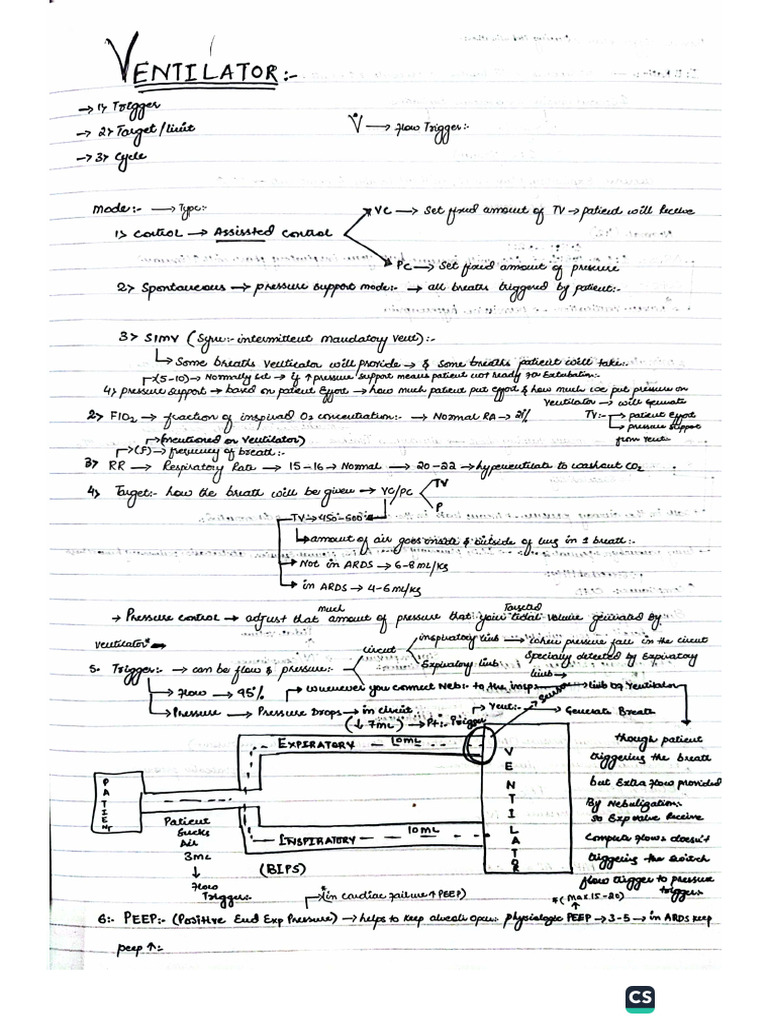 VENTILATOR:-
→ 1) Trigger
→ 2) Target/limit
V̇ → flow Trigger:-
→ 3) Cycle
Mode:- → Type:-
VC → Set fixed amount of TV → patient will Receive
1) Control → Assissted Control
PC → Set fixed amount of pressure
2) Spontaneous → pressure support mode:- → all breaths triggered by patient:-
3) SIMV (Sync:- intermittent Mandatory vent):-
Some breaths ventilator will provide → & some breaths patient will take:-
(5-10) → Normally set → if ↑ pressure support means patient not ready for Extubation:-
4) pressure support → based on patient Effort → how much patient put effort & how much we put pressure on
Ventilator → will generate
2) FIO2 → fraction of inspired O2 concentration:- → Normal RA → 21%
TV:- → patient Effort
→ pressure support
from vent:-
(mentioned on Ventilator)
(f) → frequency of breath:-
3) RR → Respiratory Rate → 15-16 → Normal → 20-22 → hyperventilate to washout CO2
4) Target:- how the breath will be given → VC/PC
TV
P
TV → 450-600
amount of air goes inside & outside of lung in 1 breath:-
Not in ARDS → 6-8 mL/kg
in ARDS → 4-6 mL/kg
→ Pressure control → adjust that much amount of pressure that your Targeted tidal volume generated by
ventilator*
5. Trigger:- → can be flow & pressure:- circuit
inspiratory limb → when pressure fall in the circuit
Expiratory limb specially detected by Expiratory
limb →
→ flow → 95% → whenever you connect Neb:- to the insp limb of Ventilator
→ Pressure → Pressure Drops → in circuit
→ Vent:- → Generate Breath
Sensor
(↓ 7mL) → Pt:- Trigger
EXPIRATORY — 10mL
PATIENT
VENTILATOR
INSPIRATORY — 10mL
(BIPS)
Patient
Sucks
Air
3mL
↓
flow
Trigger:-
though patient
triggering the breath
but Extra flow provided
By Nebulization:-
so Exp valve Receive
Complete flow & doesn't
triggering the Switch
flow trigger to pressure
trigger:-
*(in cardiac failure ↑ PEEP)
*(Max. 15-20)
6:- PEEP:- (Positive End Exp Pressure) → helps to keep alveoli open:- physiologic PEEP → 3-5 → in ARDS keep
peep ↑:-
CS